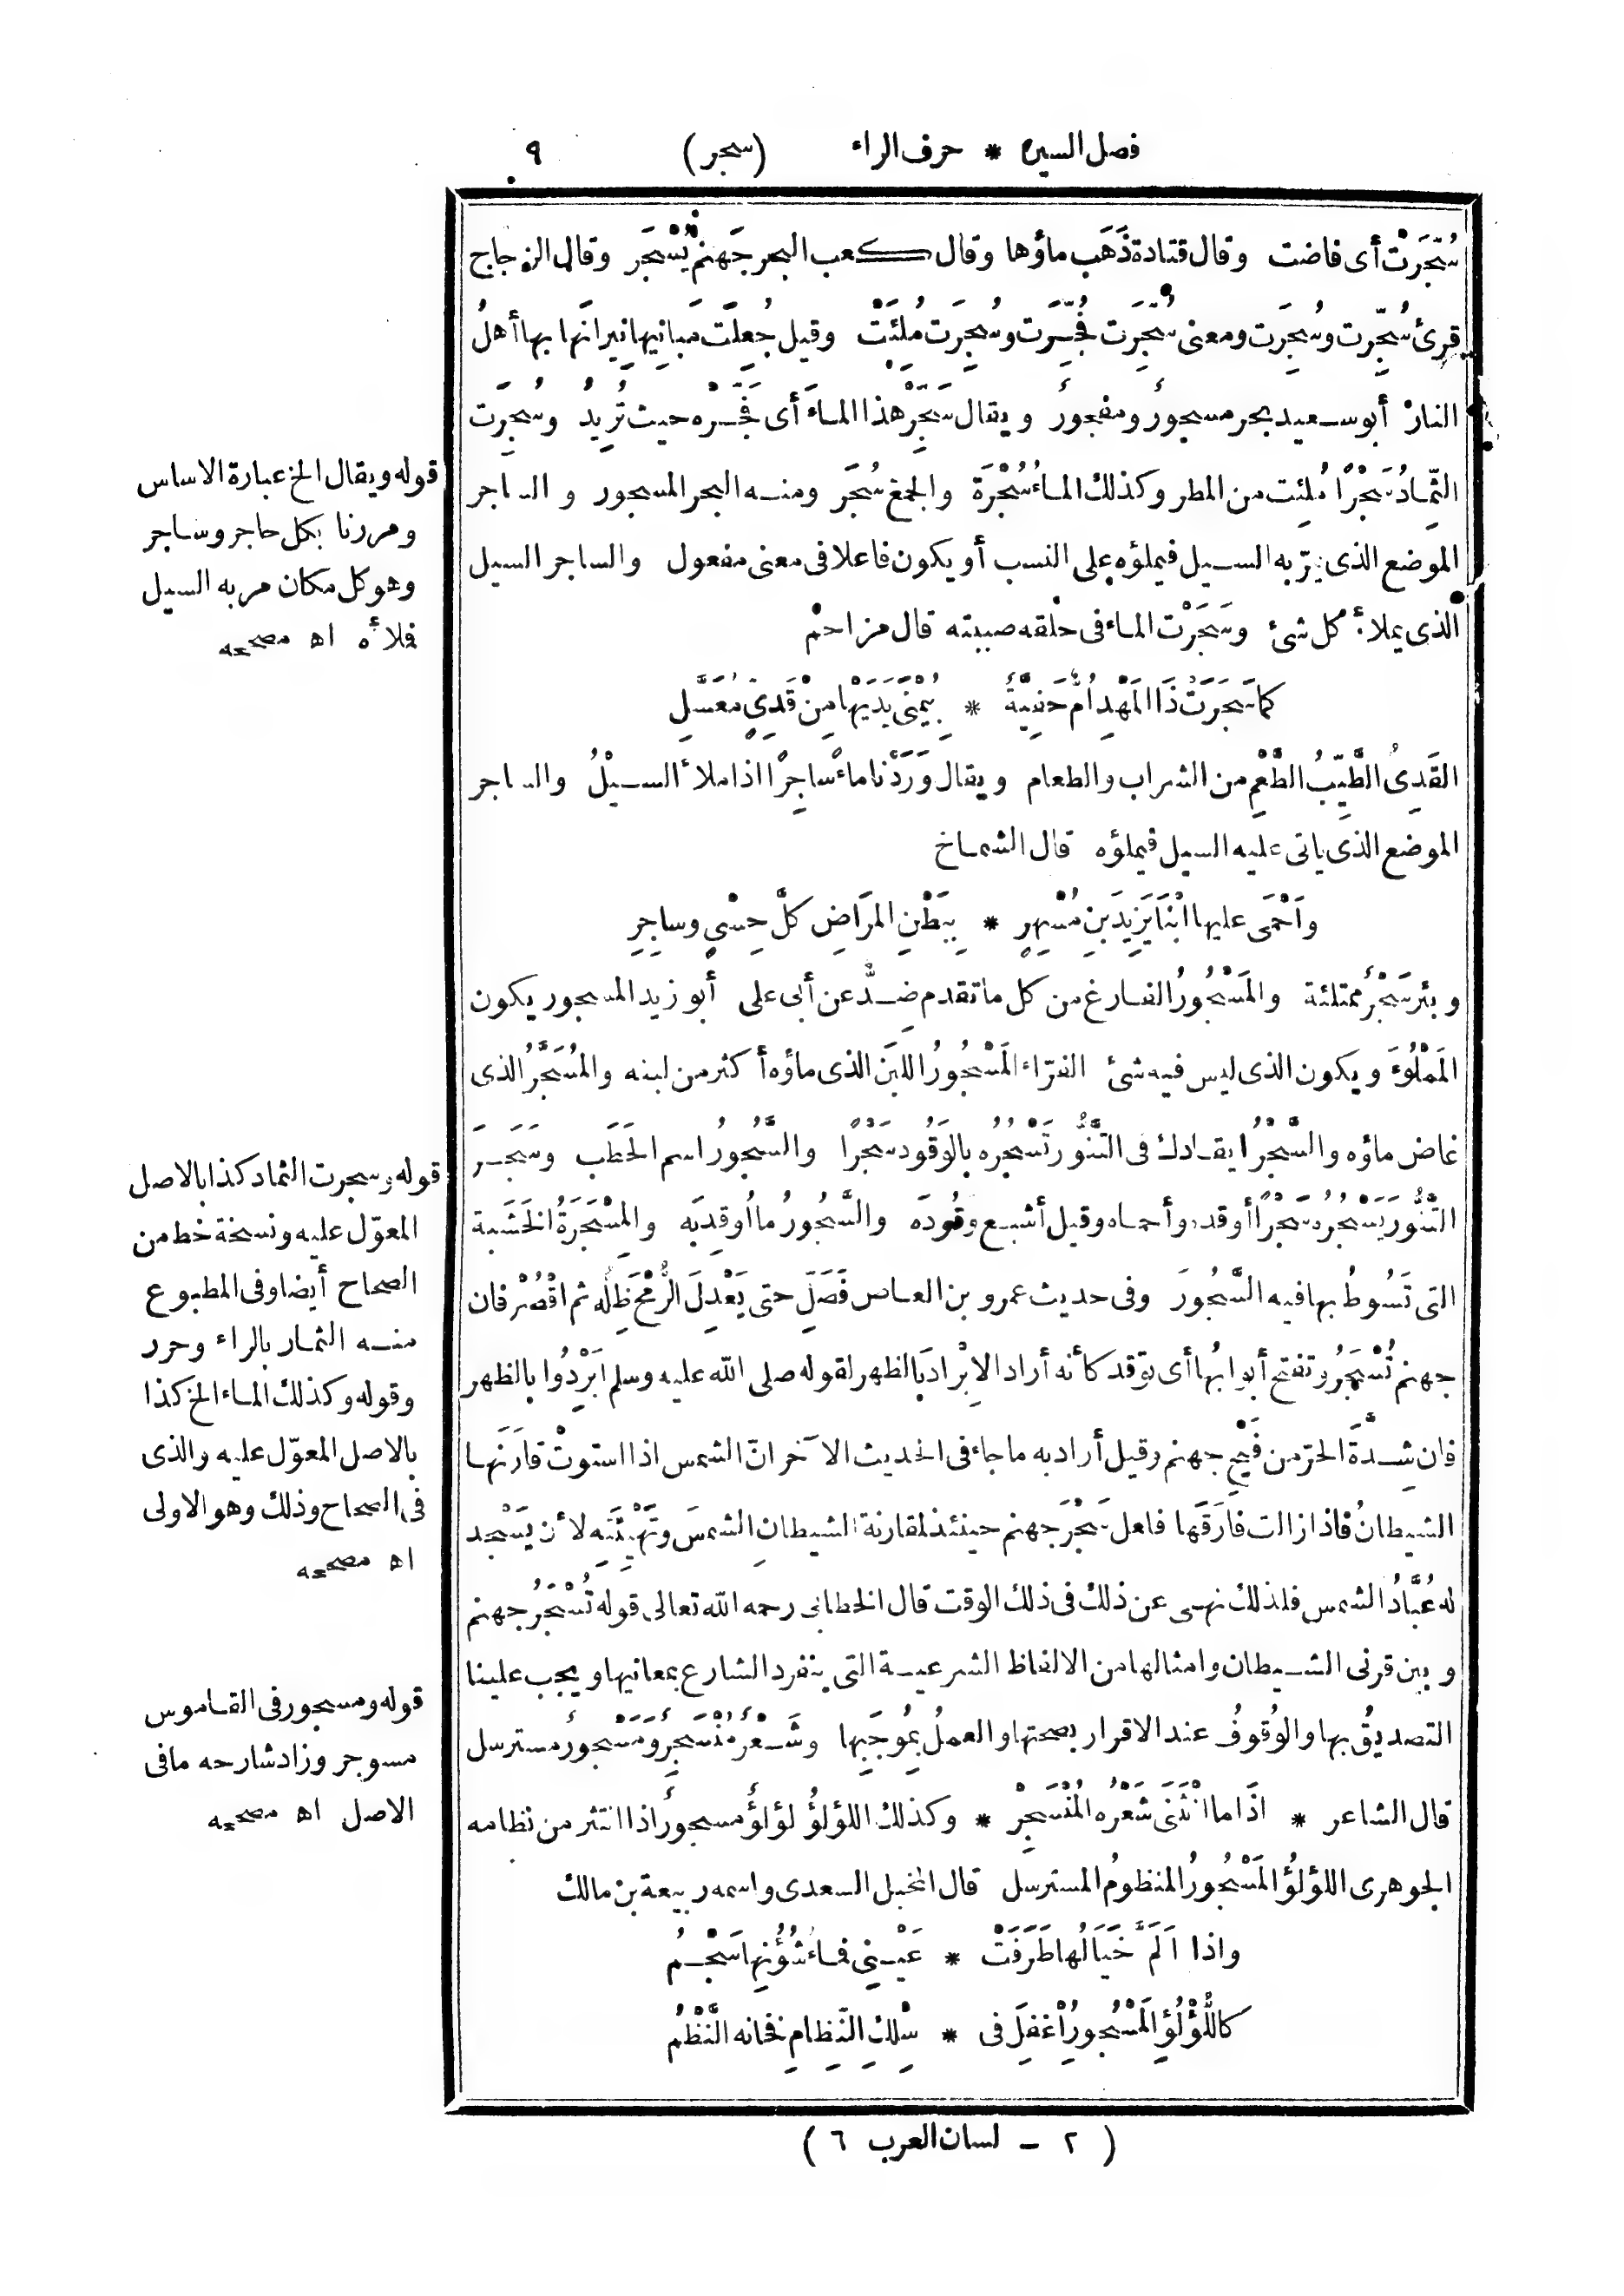 فصل السين * حرف الراء (سجر) ٩
سُجِّرَتْ أى فاضت وقال قتادة ذَهَب ماؤها وقال كعب البحر جَهنم يُسْجَر وقال الزجاج
قرئ سُجِّرت وسُجِرَت ومعنى سُجِّرَت فُجِّرَت وسُجِرَت مُلِئَتْ وقيل جُعِلَت مَبانِيها نِيرانَها بها أهلُ
النارْ أبو سعيد بحر مسجورٌ ومفجورٌ ويقال سَجِّرْ هذا الماءَ أى فَجِّرْه حيث تُرِيدُ وسُجِرَت
الثِّمادُ سَجْرًا مُلِئت من المطر وكذلك الماءُ سُجْرَة والجمع سُجَر ومنه البحر المسجور والساجر
الموضع الذى يمرّ به السيل فيملؤه على النسب أو يكون فاعلا فى معنى مفعول والساجر السيل
الذى يملأ كل شئ وسَجَرْت الماء فى حلْقه صببته قال مزاحم
كما سَجَرَتْ ذَا المَهْدِ أُمٌّ حَفِيَّةٌ * بِيُمْنَى يَدَيْها مِنْ قَدِىٍّ مُعَسَّلِ
القَدِىُّ الطَّيِّبُ الطَّعْمِ من الشراب والطعام ويقال وَرَدْنا ماءً ساجِرًا اذا ملأ السيلُ والساجر
الموضع الذى ياتى عليه السيل فيملؤه قال الشماخ
وأَحْمَى عليها ابْنَا يَزِيدَ بنِ مُسْهِرٍ * بِبَطْنِ المَرَاضِ كلَّ حِسْىٍ وساجِرِ
وبئر سَجْرٌ ممتلئة والمَسْجُورُ الفارغ من كل ما تقدم ضِدٌّ عن أبى على أبو زيد المسجور يكون
المَمْلُوءَ ويكون الذى ليس فيه شئ الفرّاء المَسْجُورُ اللبَن الذى ماؤه أكثر من لبنه والمُسَجَّرُ الذى
غاض ماؤه والسَّجْرُ ايقادك فى التَّنُّور تَسْجُرُه بالوَقُود سَجْرًا والسَّجُورُ اسم الحَطَب وسَجَرَ
التَّنُّورَ يَسْجُره سَجْرًا أوقده وأحماه وقيل أشبع وقُودَه والسَّجُورُ ما أُوقِدَ بِه والمِسْجَرَةُ الخَشَبة
التى تَسُوطُ بها فيه السَّجُورَ وفى حديث عمرو بن العاص فَصَلِّ حتى يَعْدِلَ الرُّمْحَ ظِلُّه ثم اقْصُرْ فان
جهنم تُسْجَرُ وتفتح أبوابُها أى توقد كأنه أراد الابْرادَ بالظهر لقوله صلى الله عليه وسلم ابْرِدُوا بالظهر
فان شِدَّة الحرّ من فَيْحِ جهنم وقيل أراد به ما جاء فى الحديث الآخر انّ الشمس اذا استوتْ قارَنَها
الشيطانُ فاذا زالت فارَقَها فلعل سَجْرَ جهنم حينئذ لمقارنة الشيطانِ الشمسَ وتَهْيِئَتِه لأن يَسْجد
له عُبَّادُ الشمس فلذلك نهى عن ذلك فى ذلك الوقت قال الخطابى رحمه الله تعالى قوله تُسْجَرُ جهنم
وبين قرنى الشيطان وامثالها من الالفاظ الشرعية التى ينفرد الشارع بمعانيها ويجب علينا
التصديقُ بها والوُقوفُ عند الاقرار بصحتها والعملُ بِمُوجَبِها وشَعْرٌ مُنْسَجِرٌ ومَسْجُورٌ مسترسل
قال الشاعر * اذا ما انْثَنَى شَعْرُه المُنْسَجِرْ * وكذلك اللؤلؤُ لؤلؤٌ مسجورٌ اذا انتثر من نظامه
الجوهرى اللؤلؤُ المَسْجُورُ المنظومُ المسترسل قال المخبل السعدى واسمه ربيعة بن مالك
واذا أَلَمَّ خَيَالُها طَرَفَتْ * عَيْنِى فماءُ شُؤُنِها سَجْمُ
كاللُّؤْلُؤِ المَسْجُورِ أُغْفِلَ فى * سِلْكِ النِّظامِ فخانه النَّظْمُ
( ٢ - لسان العرب ٦ )
قوله ويقال الخ عبارة الاساس
ومررنا بكل حاجر وساجر
وهو كل مكان مر به السيل
فملأه اه مصححه
قوله وسجرت الثماد كذا بالاصل
المعوّل عليه ونسخة خط من
الصحاح أيضا وفى المطبوع
منه الثمار بالراء وحرر
وقوله وكذلك الماء الخ كذا
بالاصل المعوّل عليه والذى
فى الصحاح وذلك وهو الاولى
اه مصححه
قوله ومسجور فى القاموس
مسوجر وزاد شارحه ما فى
الاصل اه مصححه